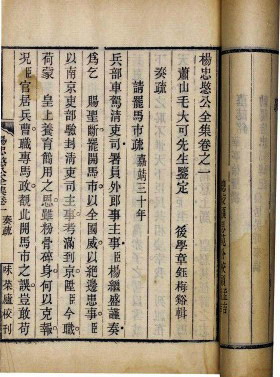 楊忠愍公全集卷之一
蕭山毛大可先生鑒定
後學章鈺梅谿輯
奏疏
請罷馬市疏 嘉靖三十年
兵部車駕清吏司署員外郎事主事臣楊繼盛謹奏
爲乞 賜聖斷罷開馬市以全國威以絕邊患事臣
以南京吏部驗封清吏司主事考滿到京陞臣今職
荷蒙 皇上養育簡用之恩雖粉骨碎身何以克報
況臣官居兵曹職專馬政覩此開馬市之誤豈敢苟
楊忠愍公全集 卷一 奏疏
味菜廬校刊